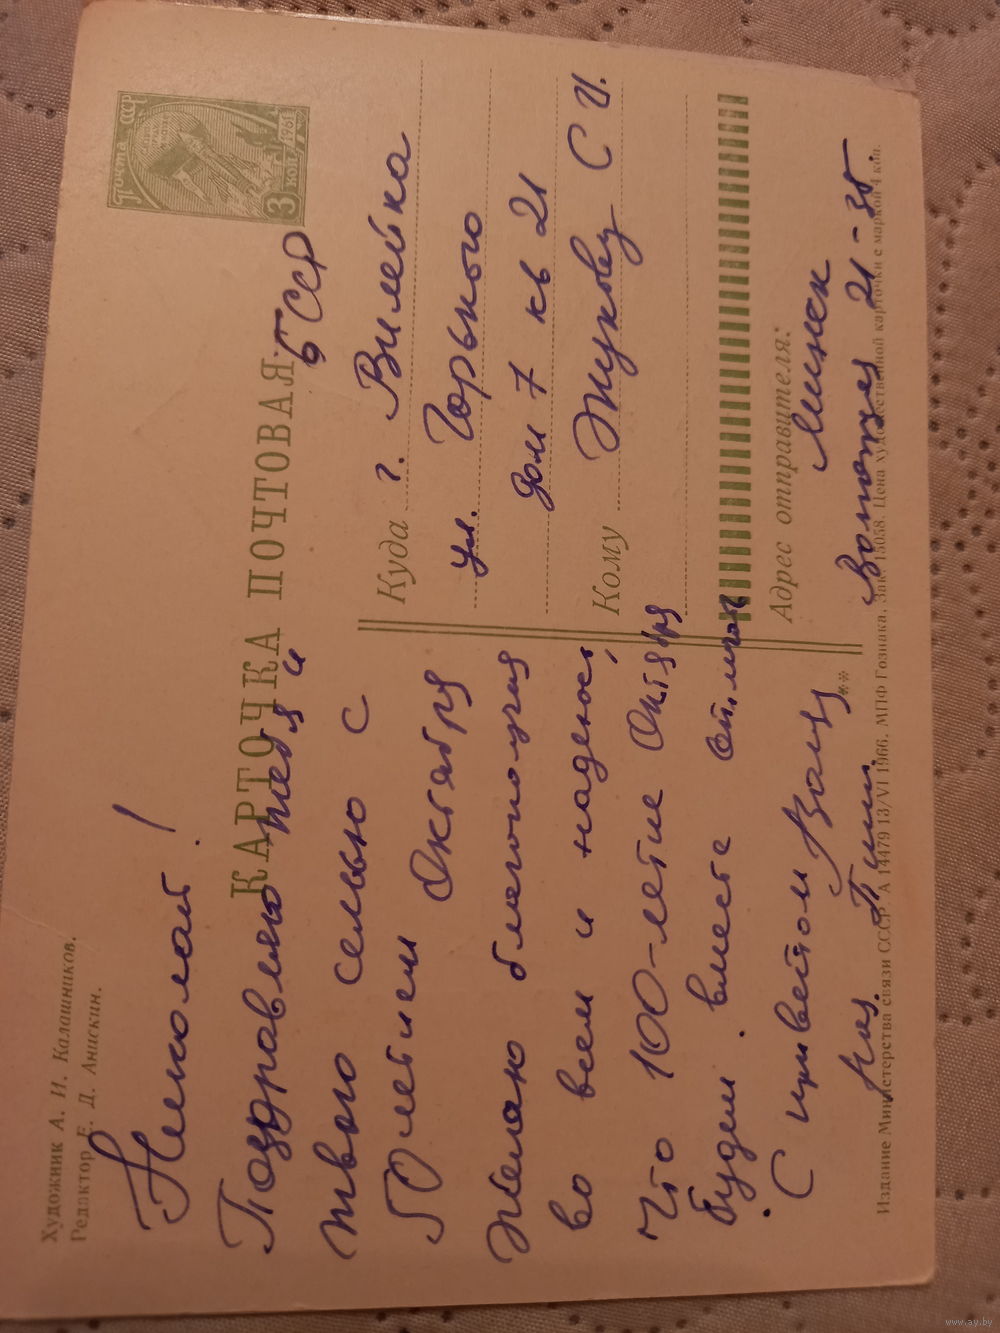 Художник А. И. Калашников.
Редактор Е. Д. Анискин.
Почта СССР
3 коп 1961
КАРТОЧКА ПОЧТОВАЯ
Николай!
Поздравляю тебя и
твою семью с
50 летием Октября
Желаю благополучия
во всем и надеюсь,
что 100-летие Октября
будем вместе отмечать
С приветом
Пиши.
БССР
Куда г. Вилейка
ул. Горького
дом 7 кв 21
Кому Жукову С И.
Адрес отправителя:
Минск
21-35.
Издание Министерства связи СССР. А 14479 13/VI 1966. МПФ Гознака. Зак. 15058. Цена художественной карточки с маркой 4 коп.
www.ay.by